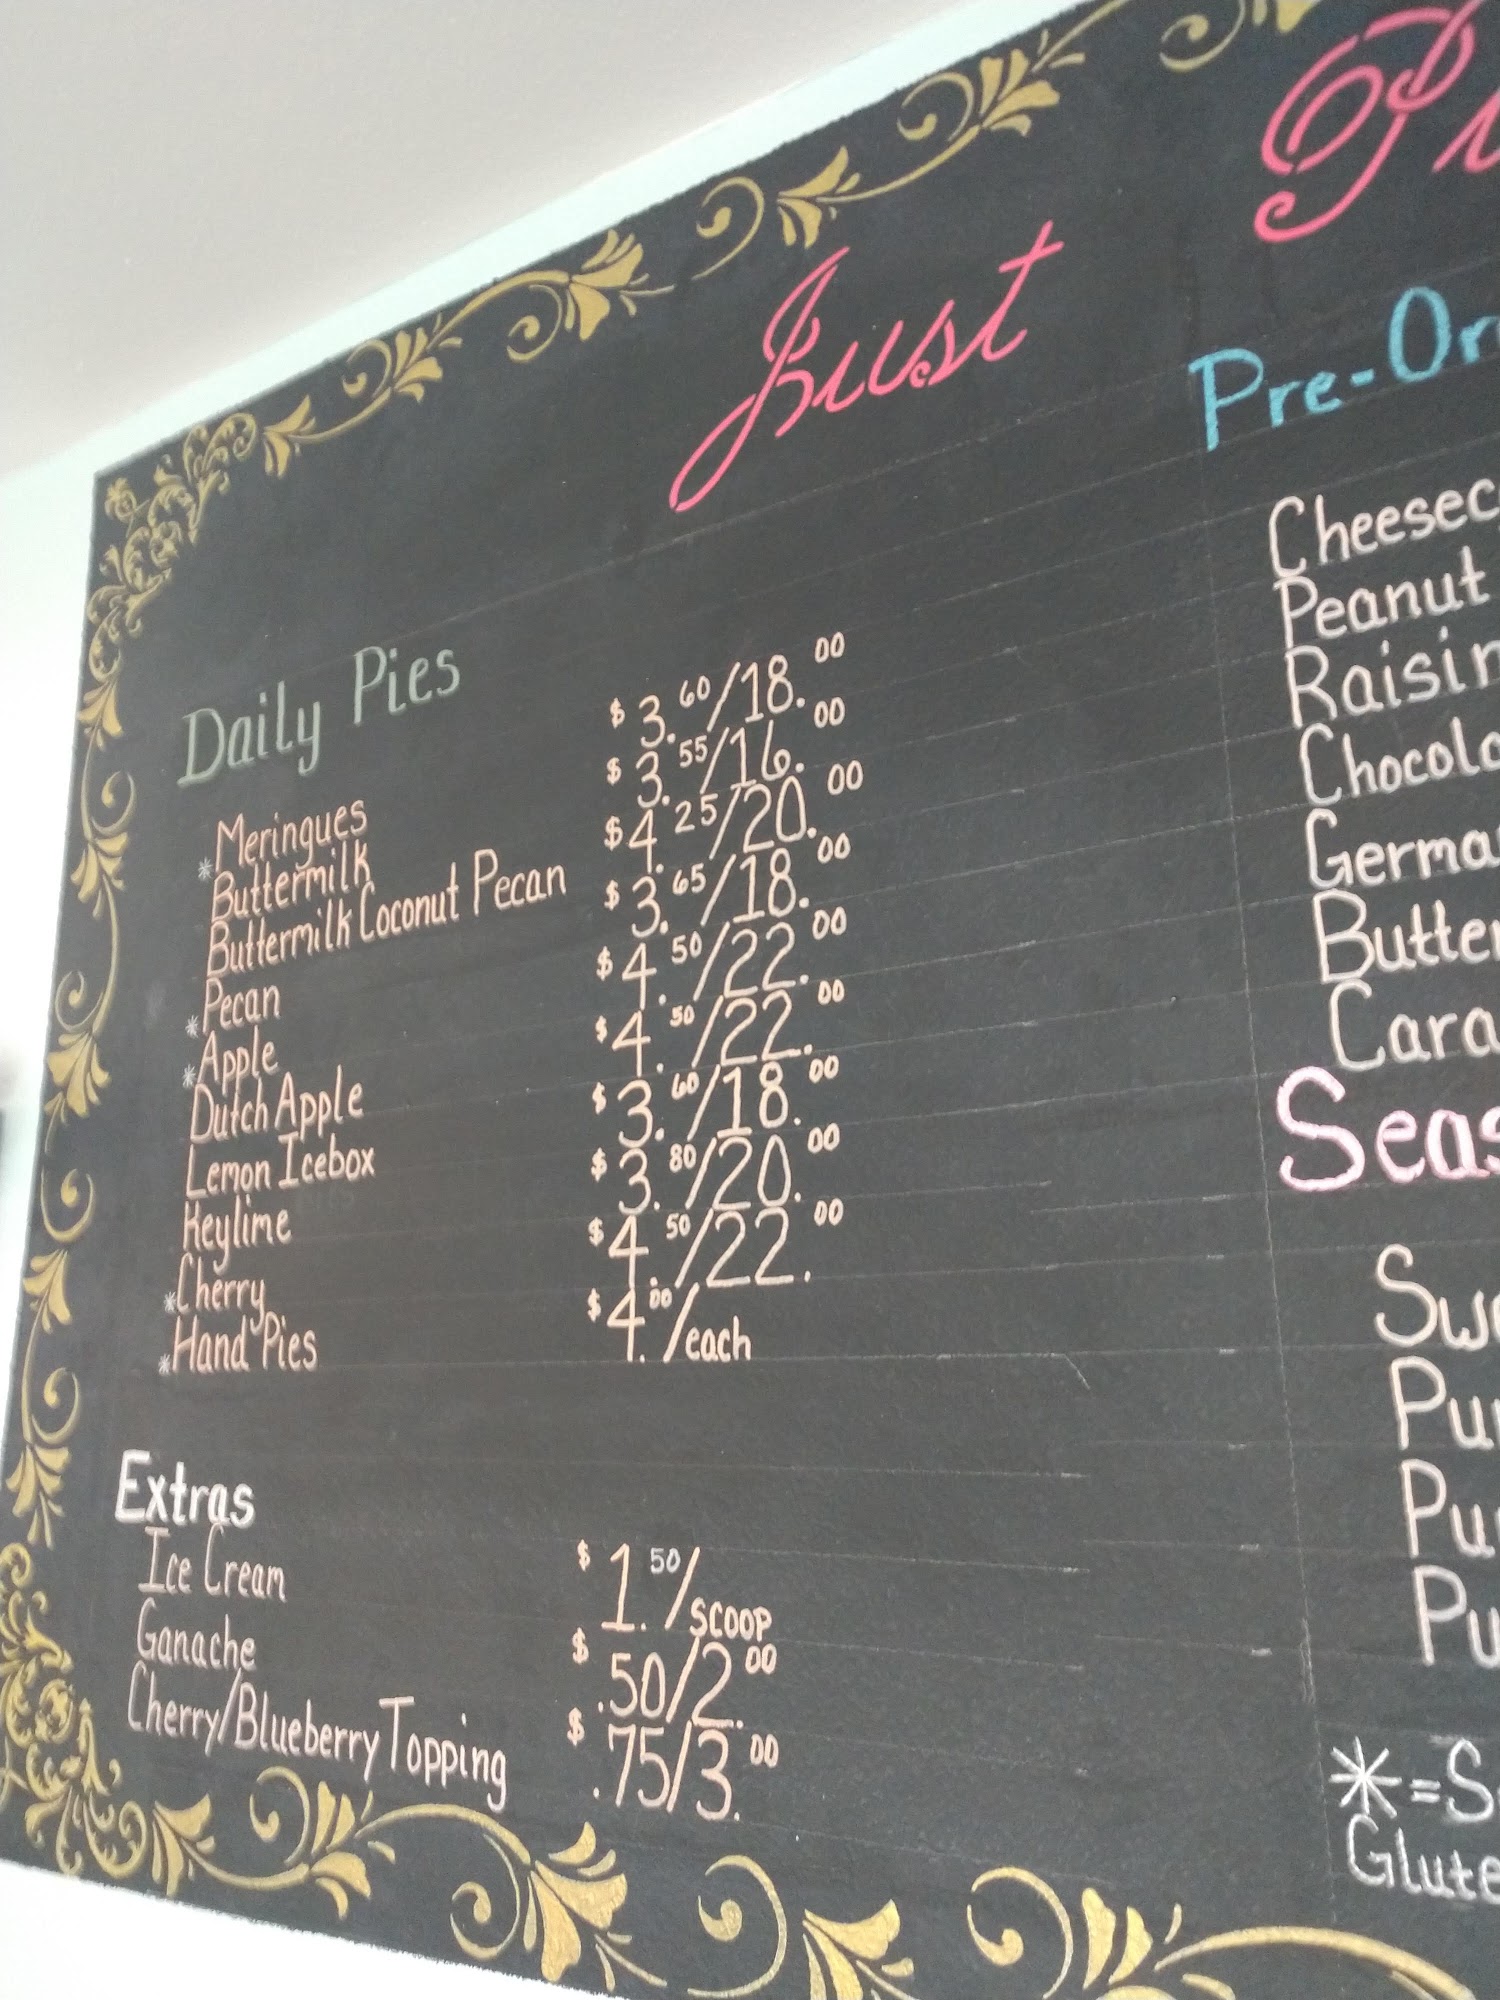 Just
Daily Pies
Meringues $3.60/18.00
*Buttermilk $3.55/16.00
Buttermilk Coconut Pecan $4.25/20.00
Pecan $3.65/18.00
*Apple $4.50/22.00
*Dutch Apple $4.50/22.00
Lemon Icebox $3.60/18.00
Keylime $3.80/20.00
Cherry $4.50/22.00
*Hand Pies $4.00/each
*
Extras
Ice Cream $1.50/SCOOP
Ganache $.50/2.00
Cherry/Blueberry Topping $.75/3.00
Pre-Or
Cheesec
Peanut
Raisin
Chocola
Germa
Butter
Cara
Seas
Sw
Pu
Pu
Pu
*=S
Glute